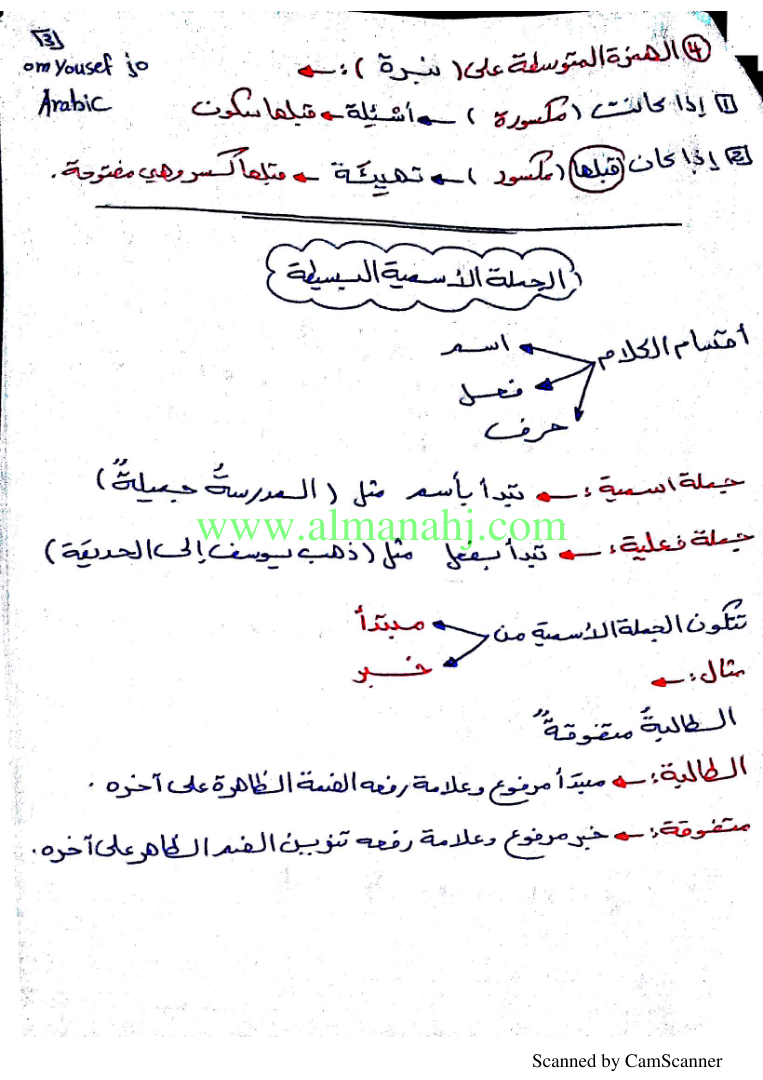 3
om Yousef jo
Arabic
④ الهمزة المتوسطة على ( نبرة ) :←
1 إذا كانت ( مكسورة ) ← أسْئِلة ← قبلها سكون
2 إذا كان قبلها ( مكسور ) ← تهيِئَة ← قبلها كسر وهي مفتوحة .
الجملة الأسمية البسيطة
أقسام الكلام
اسم
فعل
حرف
جملة اسمية :← تبدأ بأسم مثل ( المدرسةُ جميلةٌ )
www.almanahj.com
جملة فعلية :← تبدأ بفعل مثل ( ذهب يوسف إلى الحديقة )
تتكون الجملة الأسمية من
مبتدأ
خبر
مثال :←
الطالبةُ متفوقةٌ
الطالبة :← مبتدأ مرفوع وعلامة رفعه الضمة الظاهرة على آخره .
متفوقة :← خبر مرفوع وعلامة رفعه تنوين الضم الظاهر على آخره .
Scanned by CamScanner